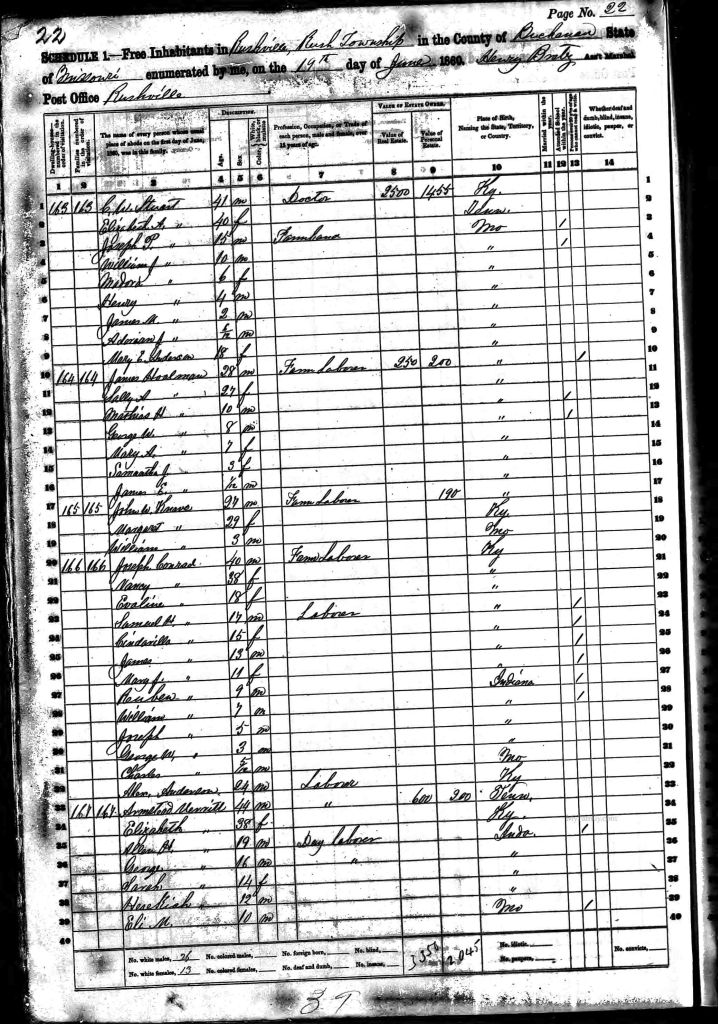 22
Page No. 22
SCHEDULE 1.—Free Inhabitants in Rushville, Rush Township in the County of Buchanan State
of Missouri enumerated by me, on the 19th day of June 1860. Henry Ass't Marshal
Post Office Rushville
Dwelling-houses numbered in the order of visitation. Families numbered in the order of visitation. The name of every person whose usual place of abode on the first day of June, 1860, was in this family. DESCRIPTION. Age. Sex. Color, White, black, or mulatto. Profession, Occupation, or Trade of each person, male and female, over 15 years of age. VALUE OF ESTATE OWNED. Value of Real Estate. Value of Personal Estate. Place of Birth, Naming the State, Territory, or Country. Married within the year. Attended School within the year. Whether deaf and dumb, blind, insane, idiotic, pauper, or convict.
1 2 3 4 5 6 7 8 9 10 11 12 13 14
163 163 C. W. Stewart 41 m Doctor 2500 1455 Ky.
Elizabeth A. " 40 f Tenn.
Joseph P. " 15 m Farmhand Mo /
William J " 10 m " /
Medora " 6 f "
Henry " 4 m "
James M. " 2 m "
J " m "
Mary E. Anderson 18 f "
164 164 James 28 m Farm Laborer 250 200 " /
Sally A. " 27 f "
H " 10 m " /
George W. " 8 m " /
Mary A. " 7 f "
Samantha J " 3 f "
James E. " m "
165 165 John W. 27 m Farm Laborer 190 "
Margaret " 29 f Ky.
William " 3 m Mo
166 166 Joseph Conrad 40 m Farm Laborer Ky
Nancy " 38 f "
Evaline " 18 f "
Samuel H. " 17 m Laborer " /
" 15 f " /
James " 13 m " /
Mary J. " 11 f " /
Reuben " 9 m Indiana /
William " 7 m "
Joseph " 5 m "
George W. " 3 m "
Charles " m Mo
Alex. Anderson 24 m Labour Ky
167 167 Armstead Merritt 44 m " 600 200 Tenn.
Elizabeth " 38 f Ky.
" 19 m Day laborer Inda. /
George " 16 m " "
Sarah " 14 f "
" 12 m "
Eli M. " 10 m Mo /
No. white males, 26 No. colored males, No. foreign born, No. blind, 3350 2045 No. idiotic, No. convicts,
No. white females, 13 No. colored females, No. deaf and dumb, No. insane, No. paupers,
39